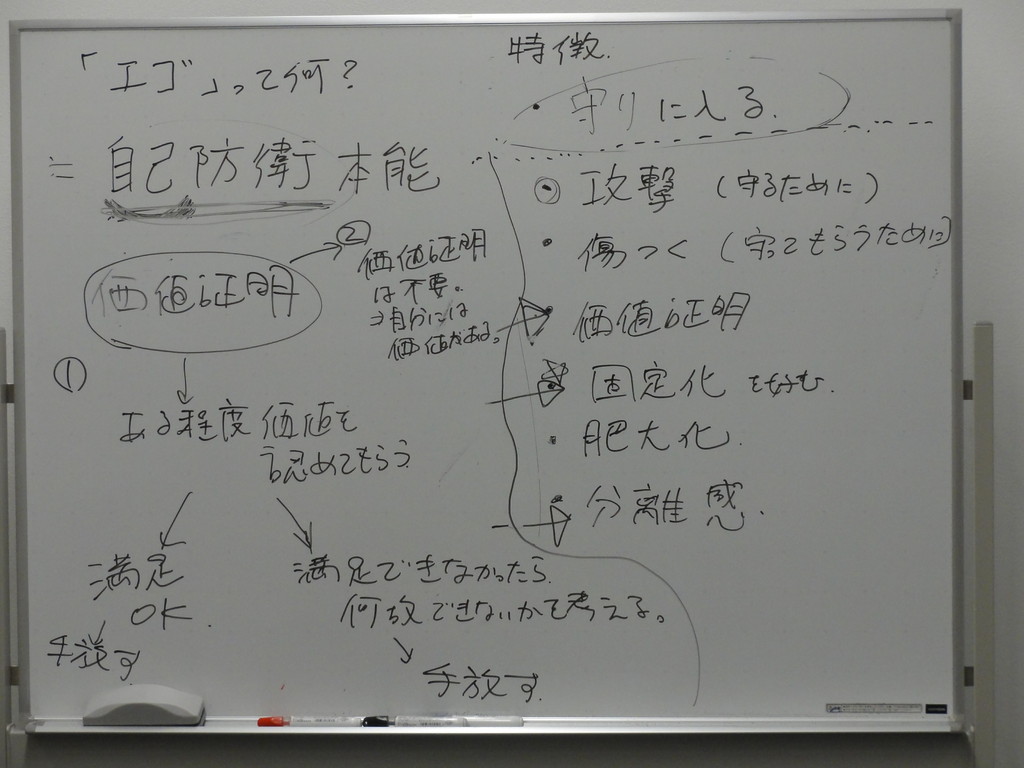 「エゴ」って何?
≒ 自己防衛本能
価値証明
②
価値証明
は不要。
⇒自分には
価値がある。
①
ある程度価値を
認めてもらう
満足
OK.
手放す
満足できなかったら
何故できないかを考える。
手放す
特徴.
・守りに入る.
・攻撃 (守るために)
・傷つく (守ってもらうために)
・価値証明
・固定化を好む.
・肥大化.
・分離感.